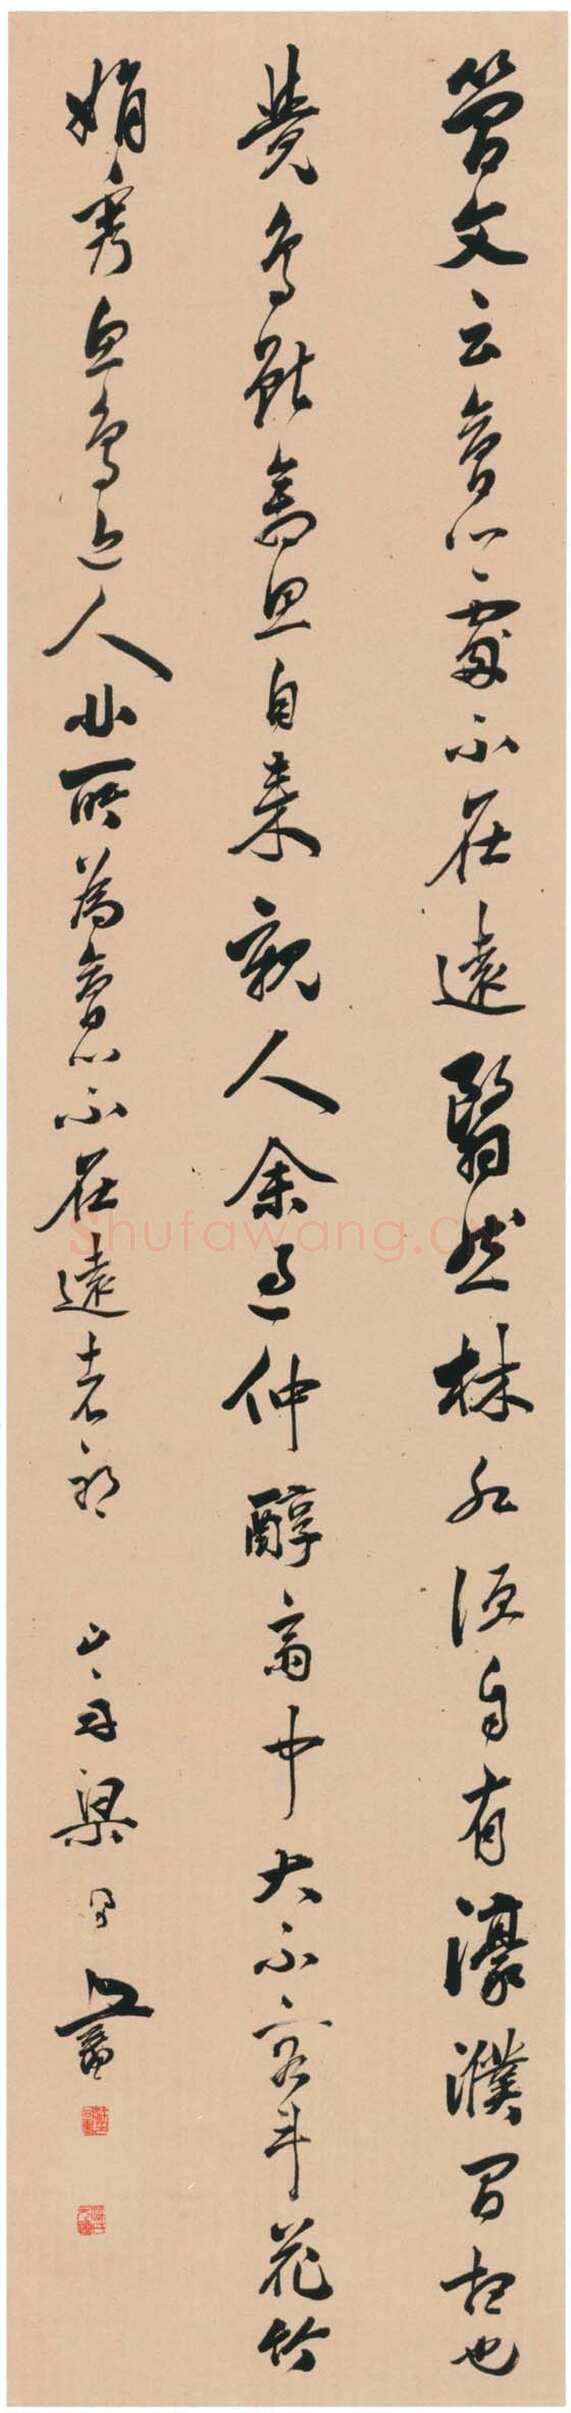 簡文云會心處不在遠翳然林水便自有濠濮間想也
覺鳥獸禽魚自來親人余過仲醇齋中大不容斗花竹
娟秀魚鳥近人此所為會心不在遠者耶 山舟梁同書
Shufawang.c